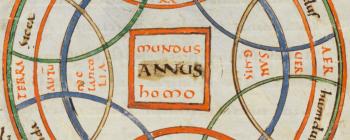 sicca
TERRA
AUTU
me
lanco
LIA
mundus
ANNUS
homo
SAN
GUIS
UER
AER
humida